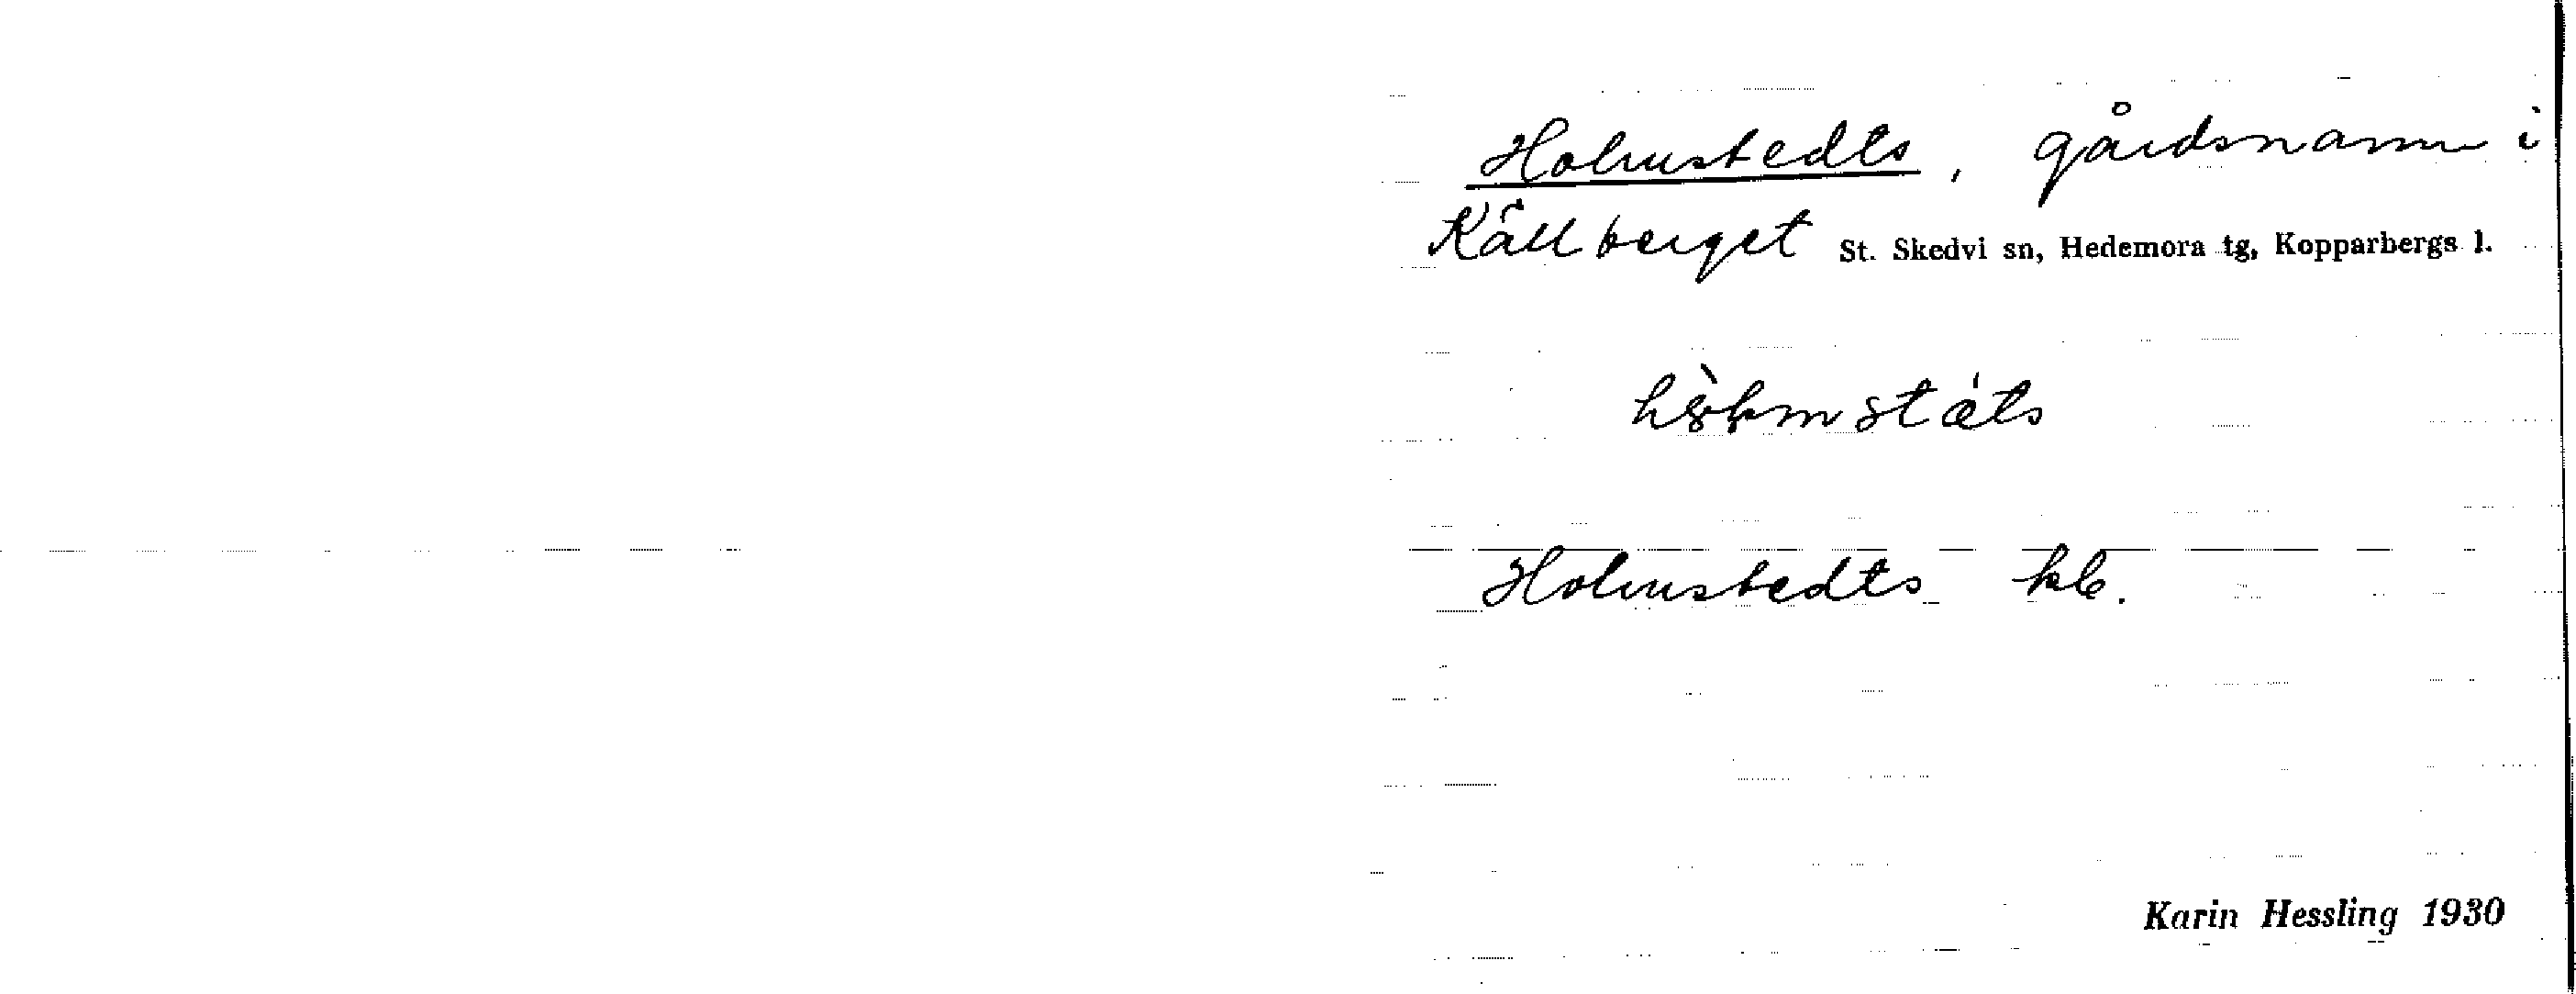 Holmstedts, gårdsnamn i
Källberget St. Skedvi sn, Hedemora tg, Kopparbergs l.
Holmstedts hb.
Karin Hessling 1930